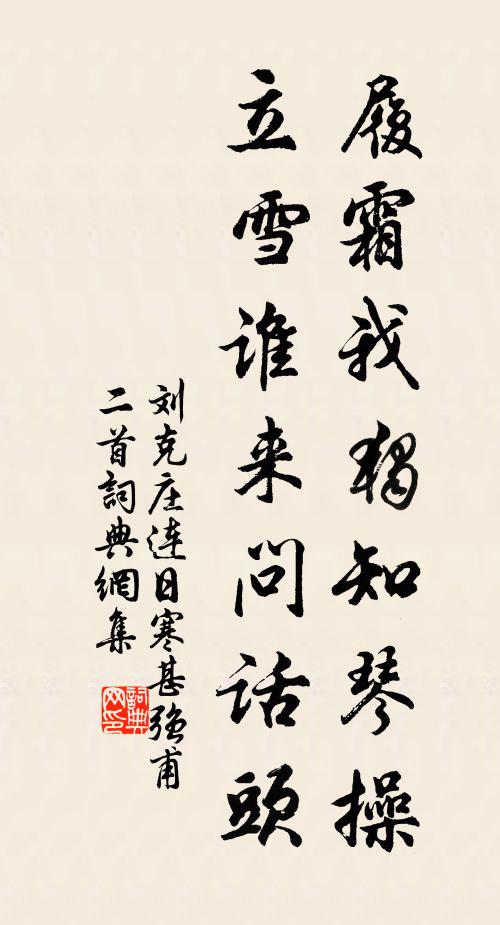 履霜我独知琴操
立雪谁来问话頭
刘克庄连日寒甚强甫
二首詞典網集
詞典
网印